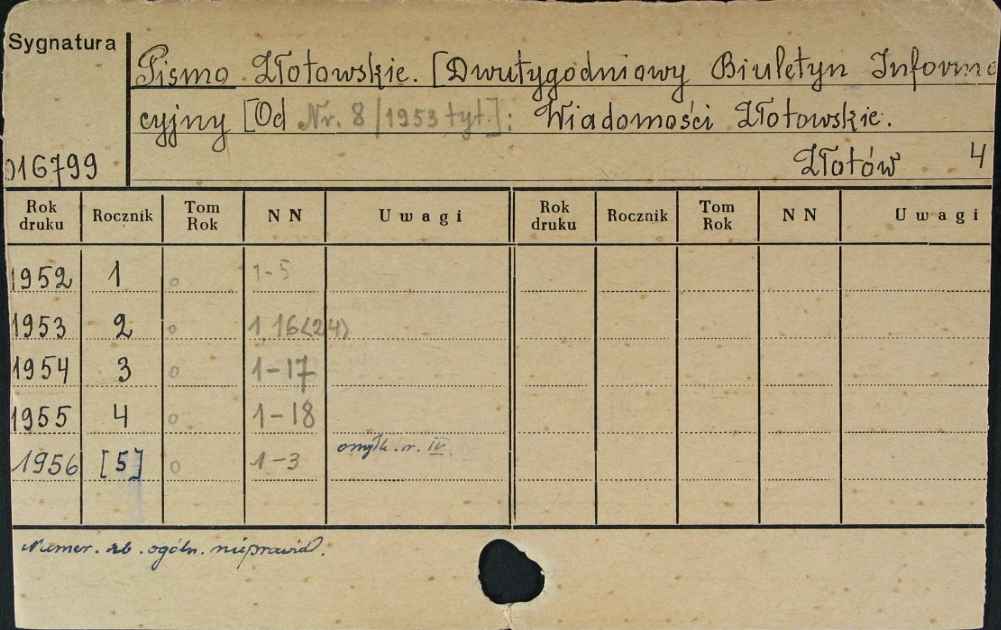 Sygnatura
Pismo Złotowskie. [Dwutygodniowy Biuletyn Informa
cyjny [Od Nr. 8/1953 tyt.]: Wiadomości Złotowskie.
016799 Złotów 4
Rok druku Rocznik Tom Rok N N Uwagi Rok druku Rocznik Tom Rok N N Uwagi
1952 1 o 1-5
1953 2 o 1 16(24)
1954 3 o 1-17
1955 4 o 1-18
1956 [5] o 1-3 omyłk. r. IV
Numer. ogóln. nieprawid.